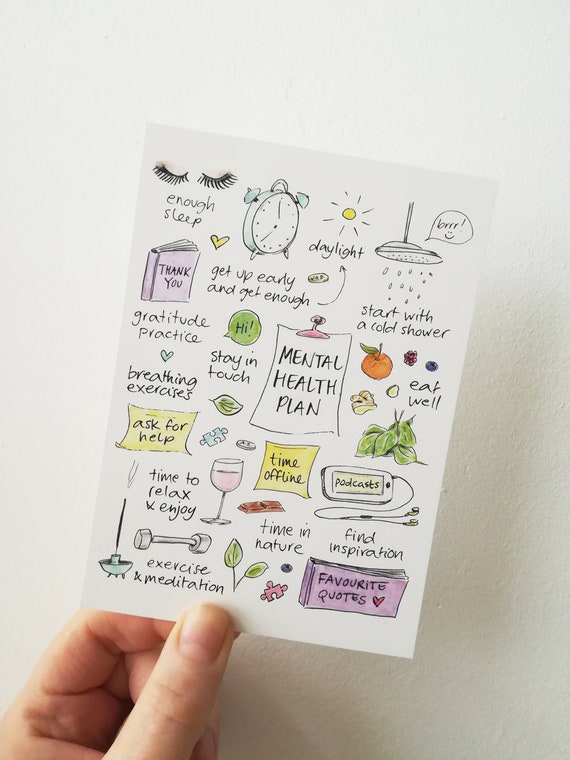 enough
sleep
brrr!
daylight
THANK
YOU
get up early
and get enough
start with
a cold shower
gratitude
practice
Hi!
stay in
touch
MENTAL
HEALTH
PLAN
breathing
exercises
eat
well
ask for
help
time
offline
time to
relax
& enjoy
podcasts
time in
nature
find
inspiration
exercise
& meditation
FAVOURITE
QUOTES